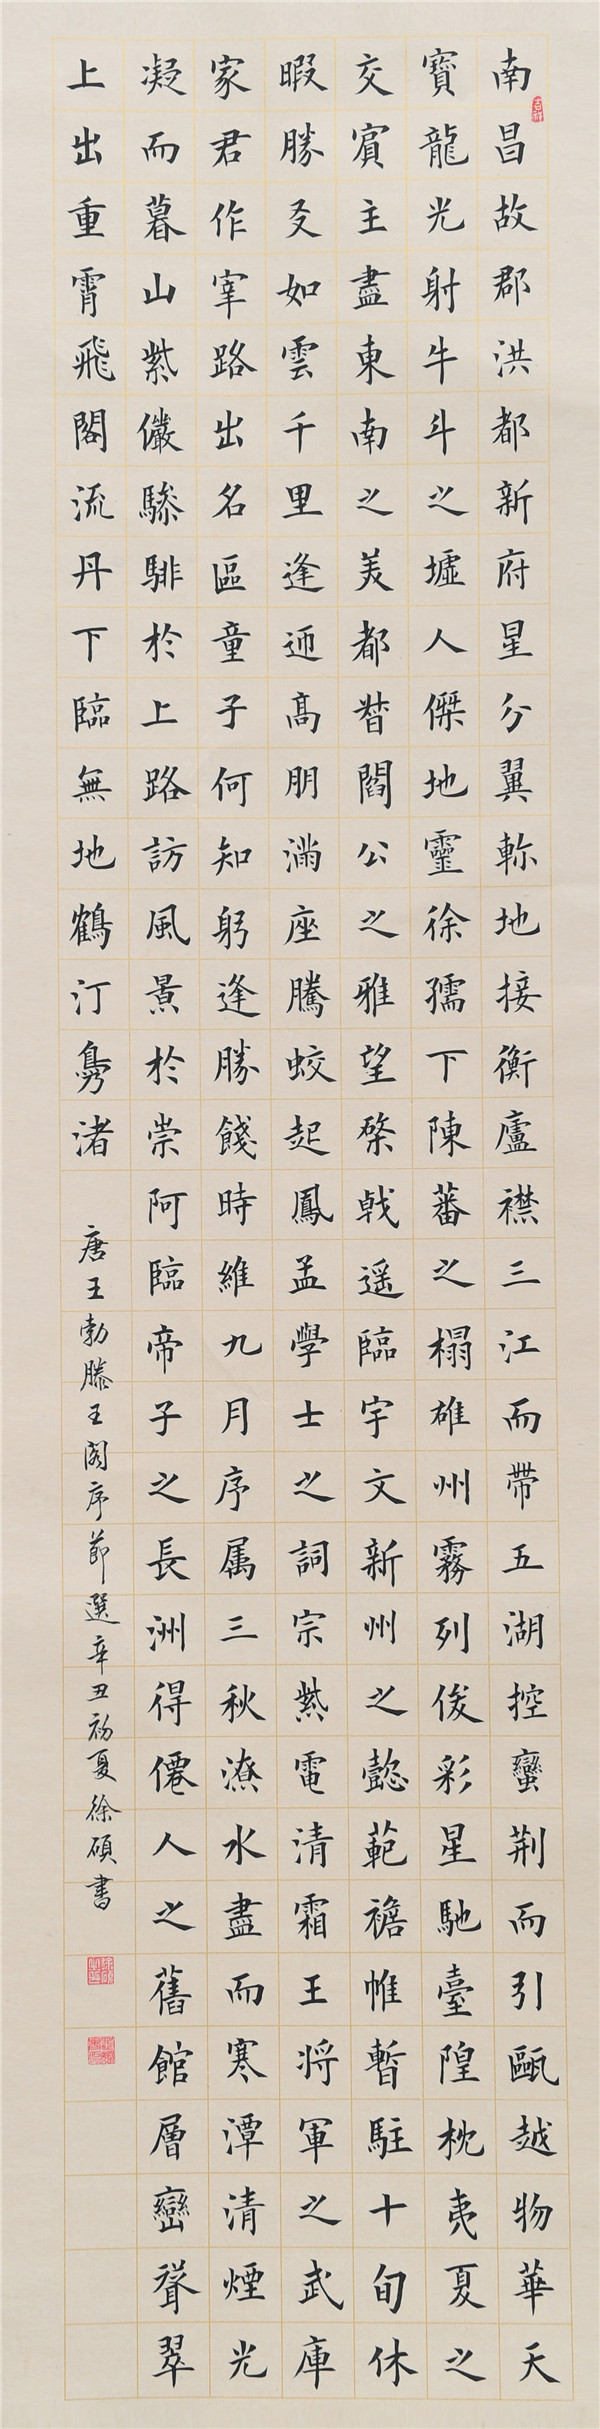 南昌故郡洪都新府星分翼軫地接衡廬襟三江而帶五湖控蠻荆而引甌越物華天
寶龍光射牛斗之墟人傑地靈徐孺下陳蕃之榻雄州霧列俊彩星馳臺隍枕夷夏之
交賓主盡東南之美都督閻公之雅望棨戟遥臨宇文新州之懿範襜帷暫駐十旬休
暇勝友如雲千里逢迎髙朋滿座騰蛟起鳳孟學士之詞宗紫電清霜王将軍之武庫
家君作宰路出名區童子何知躬逢勝餞時維九月序属三秋潦水盡而寒潭清煙光
凝而暮山紫儼驂騑於上路訪風景於崇阿臨帝子之長洲得僊人之舊館層巒聳翠
上出重霄飛閣流丹下臨無地鶴汀鳧渚
唐王勃滕王阁序節選辛丑初夏徐碩書
吉祥